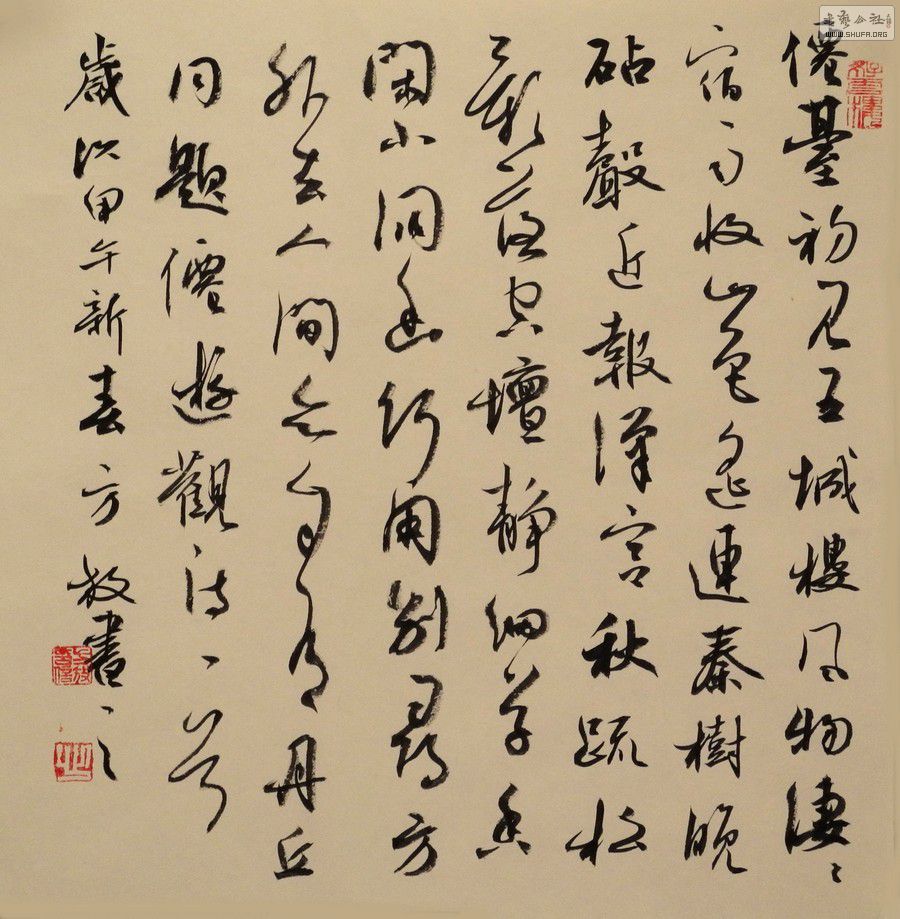 僊臺初見五城樓風物淒〻
宿雨收山色遙連秦樹晚
砧聲近報漢宮秋疏松
影落空壇靜細草香
閑小洞幽何用別尋方
外去人間亦自有丹丘
同題僊遊觀詩一首
歲次甲午新春方書之
書藝公社
WWW.SHUFA.ORG